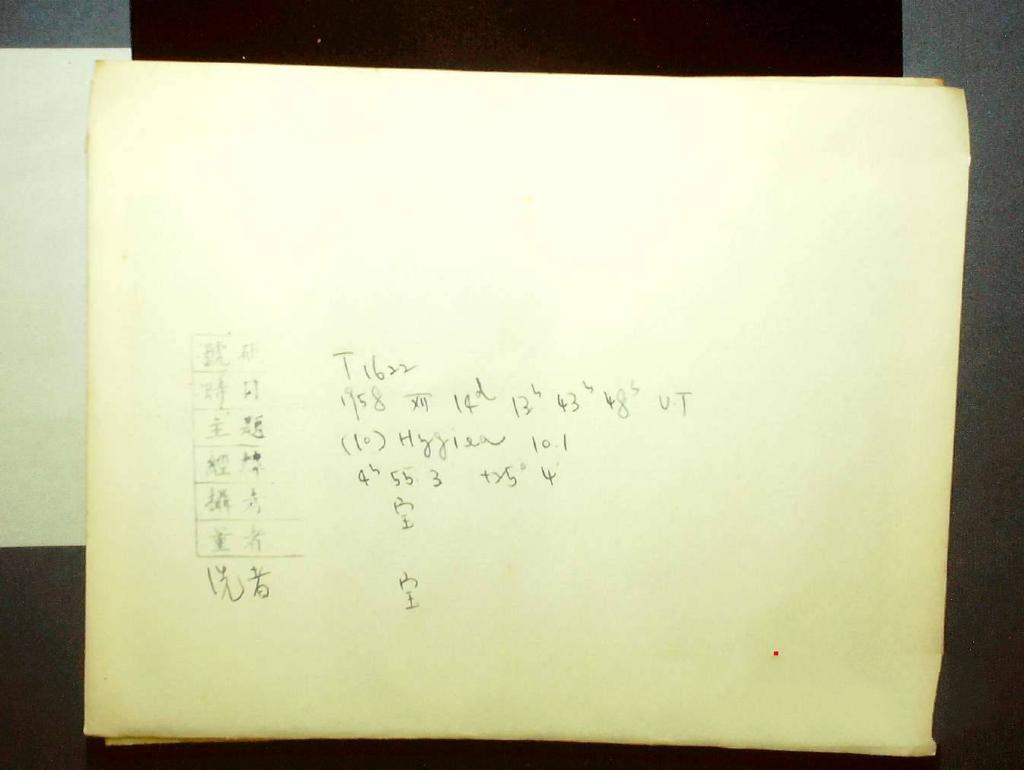 號
T 1622
時 日 1958 XII 14d 13h 43h 48s U.T
主 題 (10) Hygiea 10.1
經 緯 4h 55.3 +25° 4'
攝 者 宝
量 者
洗者 宝